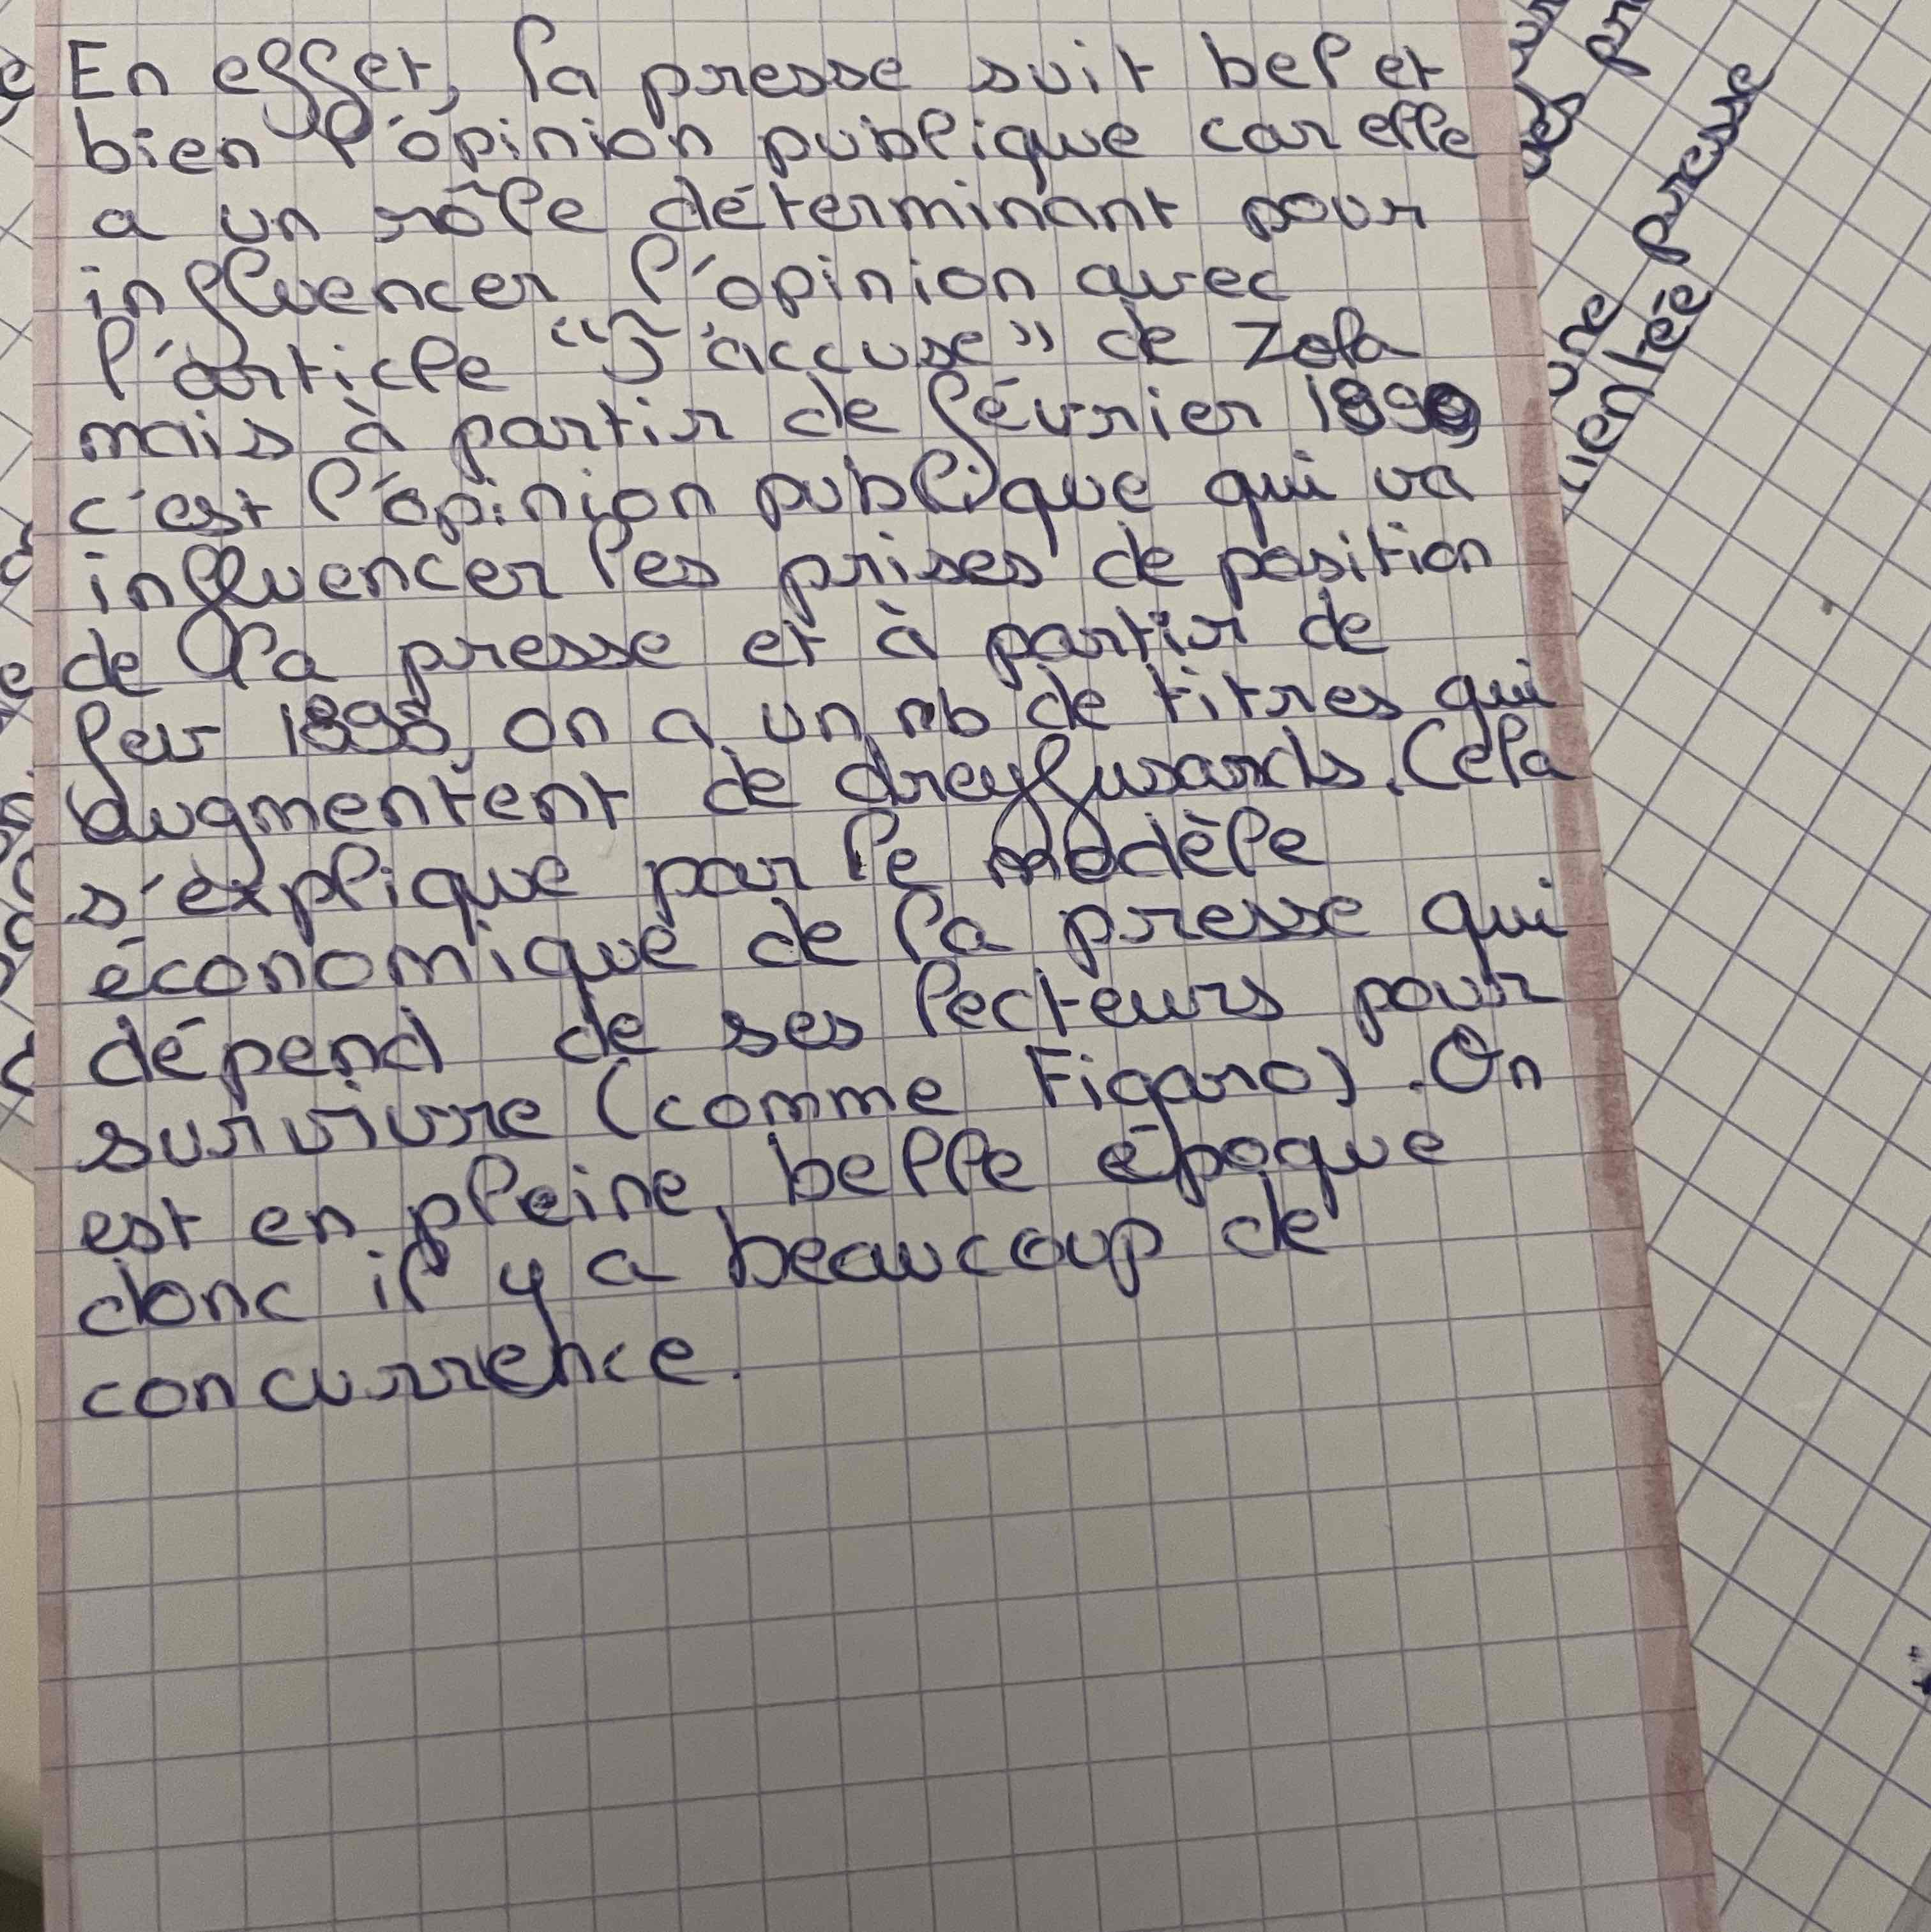 En effet, la presse suit bel et
bien l'opinion publique car elle
a un rôle déterminant pour
influencer l'opinion avec
l'article "J'accuse" de Zola
mais à partir de février
c'est l'opinion publique qui va
influencer les prises de position
de la presse et à partir de
fev 1898, on a un nb de titres qui
augmentent de dreyfusards. Cela
s'explique par le modèle
économique de la presse qui
dépend de ses lecteurs pour
survivre (comme Figaro). On
est en pleine belle époque
donc il y a beaucoup de
concurrence.
presse
une